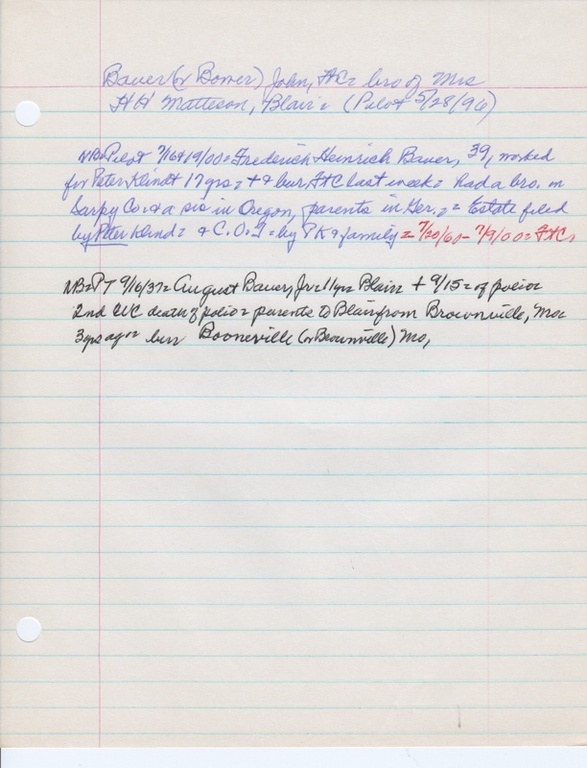 Bauer (or Bower) John, FtC = bro of Mrs
H H Matteson, Blair = (Pilot 5/28/96)
NB = Pilot 7/16 & 19/00 = Frederick Heinrich Bauer, 39, worked
for Peter Klindt 17 yrs = + & bur FtC last week = had a bro. in
Sarpy Co. & a sis in Oregon, parents in Ger. = Estate filed
by Peter Klindt = & C. O. T. = by PK & family = 7/20/60 - 7/9/00 = FtC,
NB = PT 9/16/37 = August Bauer, Jr = 11 yrs = Blair + 9/15 = of polio =
2nd WC death of polio = parents to Blair from Brownville, Mo =
3 yrs ago = bur Booneville (or Brownville) Mo,